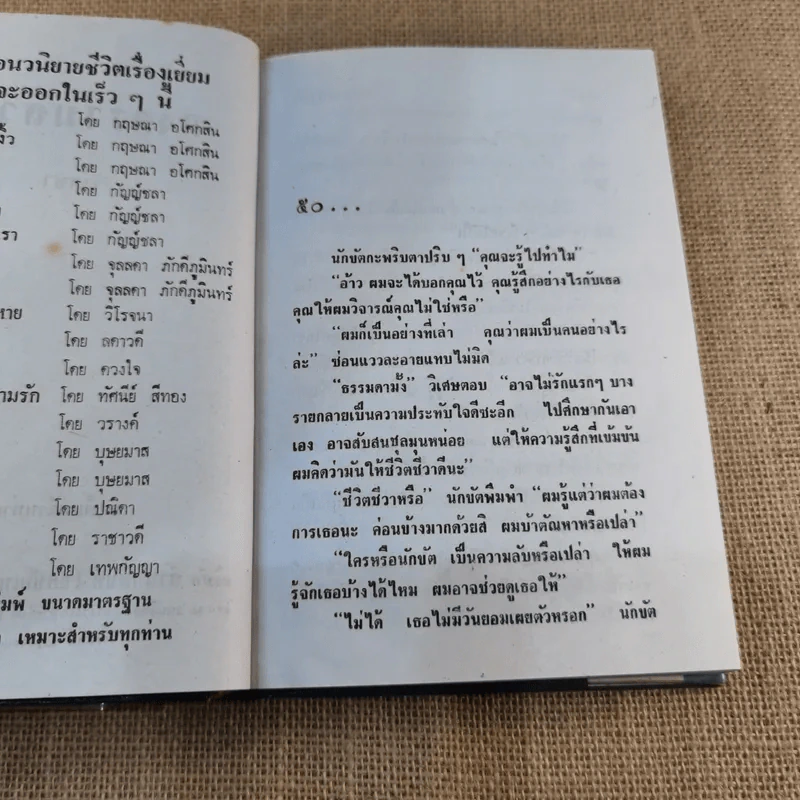 อนวนิยายชีวิตเรื่องเยี่ยม
จะออกในเร็ว ๆ นี้
โดย กฤษณา อโศกสิน
โดย กฤษณา อโศกสิน
โดย กฤษณา อโศกสิน
โดย กัญญ์ชลา
โดย กัญญ์ชลา
รา โดย กัญญ์ชลา
โดย จุลลดา ภักดีภูมินทร์
โดย จุลลดา ภักดีภูมินทร์
หาย โดย วิโรจนา
โดย ลดาวดี
โดย ดวงใจ
ามรัก โดย ทัศนีย์ สีทอง
โดย วรางค์
โดย บุษยมาส
โดย บุษยมาส
โดย ปณิดา
โดย ราชาวดี
โดย เทพกัญญา
มพ์ ขนาดมาตรฐาน
เหมาะสำหรับทุกท่าน
๕๐...
นักขัตกะพริบตาปริบ ๆ “คุณจะรู้ไปทำไม”
“อ้าว ผมจะได้บอกคุณไว้ คุณรู้สึกอย่างไรกับเธอ
คุณให้ผมวิจารณ์คุณไม่ใช่หรือ”
“ผมก็เป็นอย่างที่เล่า คุณว่าผมเป็นคนอย่างไร
ล่ะ” ซ่อนแววละอายแทบไม่มิด
“ธรรมดามั้ง” วิเศษตอบ “อาจไม่รักแรกๆ บาง
รายกลายเป็นความประทับใจดีซะอีก ไปศึกษากันเอา
เอง อาจสับสนชุลมุนหน่อย แต่ให้ความรู้สึกที่เข้มข้น
ผมคิดว่ามันให้ชีวิตชีวาดีนะ”
“ชีวิตชีวาหรือ” นักขัตพึมพำ “ผมรู้แต่ว่าผมต้อง
การเธอนะ ค่อนข้างมากด้วยสิ ผมบ้าตัณหาหรือเปล่า”
“ใครหรือนักขัต เป็นความลับหรือเปล่า ให้ผม
รู้จักเธอบ้างได้ไหม ผมอาจช่วยดูเธอให้”
“ไม่ได้ เธอไม่มีวันยอมเผยตัวหรอก” นักขัต